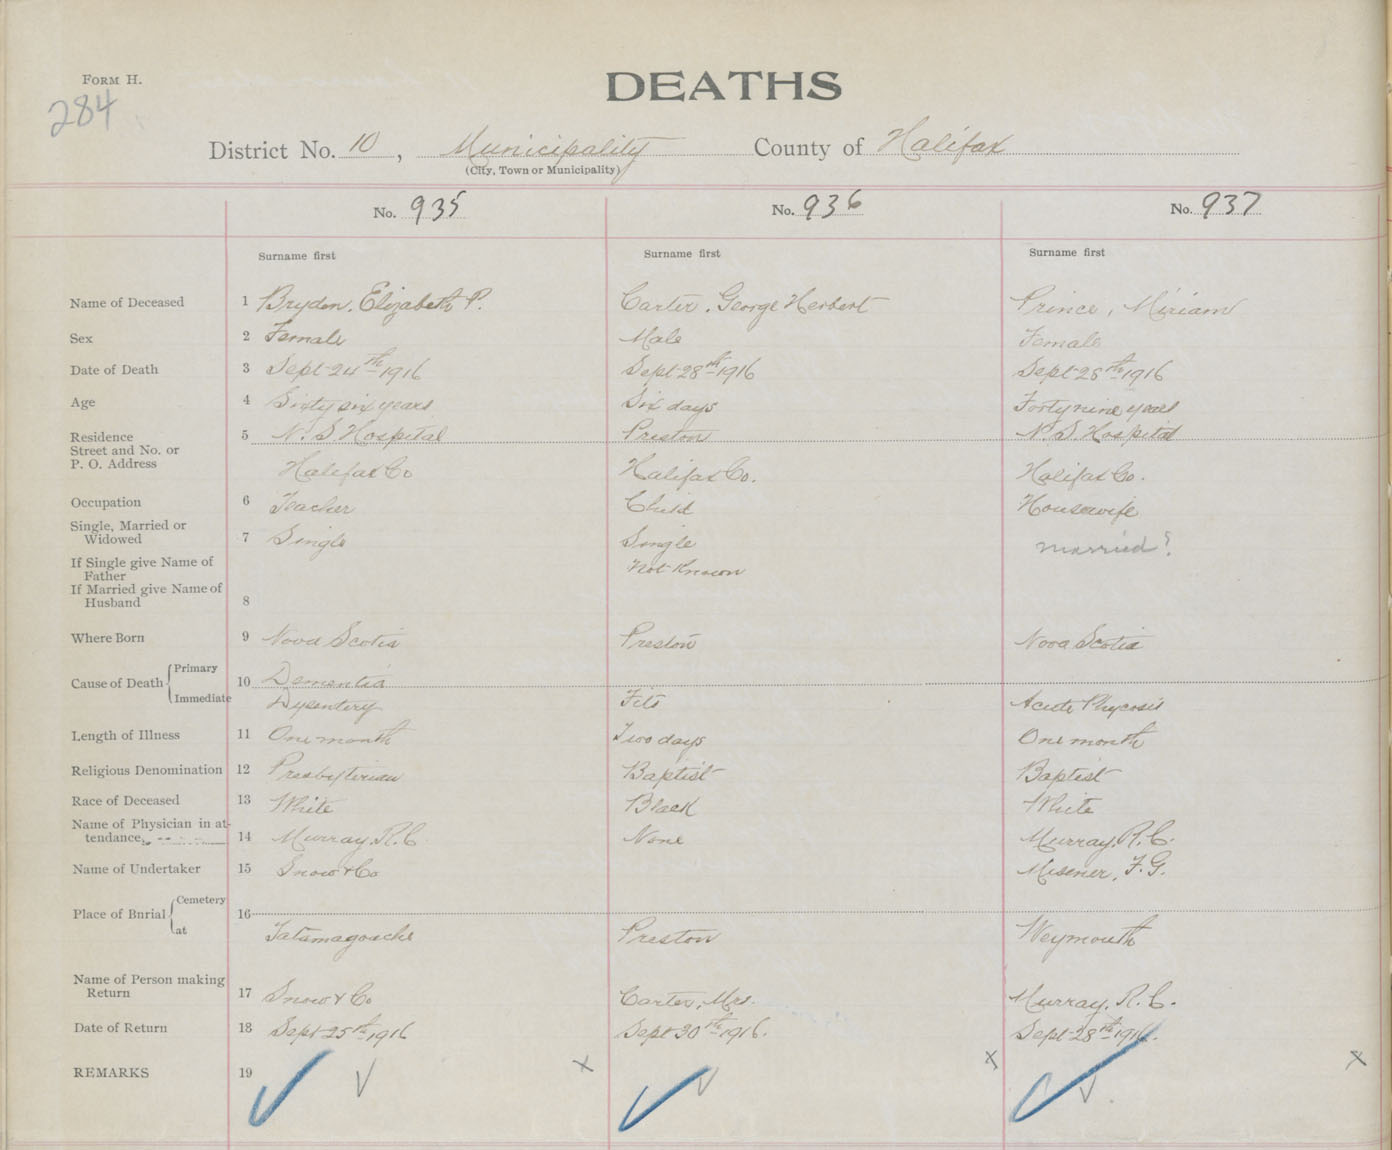 FORM H.
DEATHS
284
District No. 10, Municipality County of Halifax
(City, Town or Municipality)
No. 935 No. 936 No. 937
Surname first Surname first Surname first
Name of Deceased 1 Brydon, Elizabeth P. Carter, George Herbert Prince, Miriam
Sex 2 Female Male Female
Date of Death 3 Sept 24th 1916 Sept 28th 1916 Sept 28th 1916
Age 4 Sixty six years Six days Forty nine years
Residence 5 N. S. Hospital Preston N. S. Hospital
Street and No. or
P. O. Address Halifax Co Halifax Co. Halifax Co.
Occupation 6 Teacher Child Housewife
Single, Married or
Widowed 7 Single Single married?
If Single give Name of
Father Not Known
If Married give Name of
Husband 8
Where Born 9 Nova Scotia Preston Nova Scotia
Primary
Cause of Death 10 Dementia
Immediate Dysentery Fits Acute Phycosis
Length of Illness 11 One month Two days One month
Religious Denomination 12 Presbyterian Baptist Baptist
Race of Deceased 13 White Black White
Name of Physician in at-
tendance, 14 Murray, R. C. None Murray, R. C.
Name of Undertaker 15 Snow & Co Misener, F. G.
Cemetery
Place of Burial 16
at Tatamagouche Preston Weymouth
Name of Person making
Return 17 Snow & Co Carter, Mrs. Murray, R. C.
Date of Return 18 Sept 25th 1916 Sept 30th 1916. Sept 28th 1916.
REMARKS 19 x x x